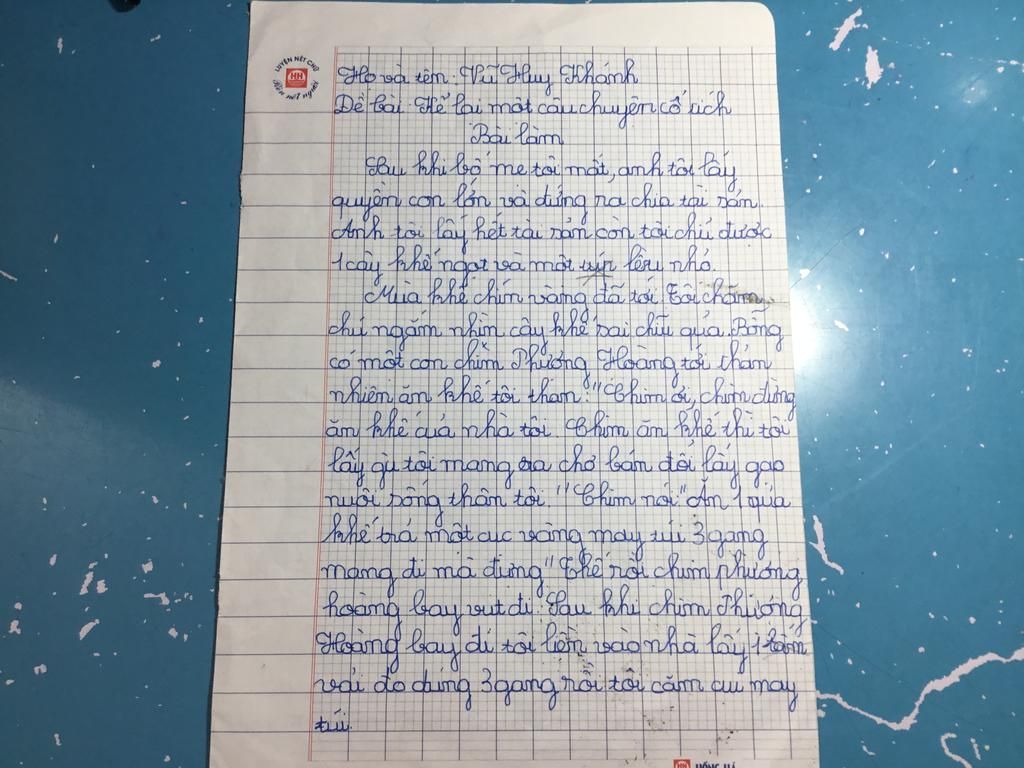 LUYỆN NÉT CHỮ
HN
Rèn nết người
Họ và tên: Vũ Huy Khánh
Đề bài: Kể lại một câu chuyện cổ tích
Bài làm
Sau khi bố mẹ tôi mất, anh tôi lấy
quyền con lớn và đứng ra chia tài sản.
Anh tôi lấy hết tài sản còn tôi chỉ được
1 cây khế ngọt và một túp lều nhỏ.
Mùa khế chín vàng đã tới. Tôi chăm
chú ngắm nhìn cây khế sai chĩu qủa. Bỗng
có một con chim Phượng Hoàng tới thản
nhiên ăn khế tôi than: "Chim ơi, chim đừng
ăn khế của nhà tôi. Chim ăn khế thì tôi
lấy gì tôi mang ra chợ bán đổi lấy gạo
nuôi sống thân tôi." Chim nói "Ăn 1 qủa
khế trả một cục vàng may túi 3 gang
mang đi mà đựng" Thế rồi chim phượng
hoàng bay vụt đi. Sau khi chim Phượng
Hoàng bay đi tôi liền vào nhà lấy 1 tấm
vải đo đúng 3 gang rồi tôi cắm cúi may
túi.
HN HỒNG HÀ